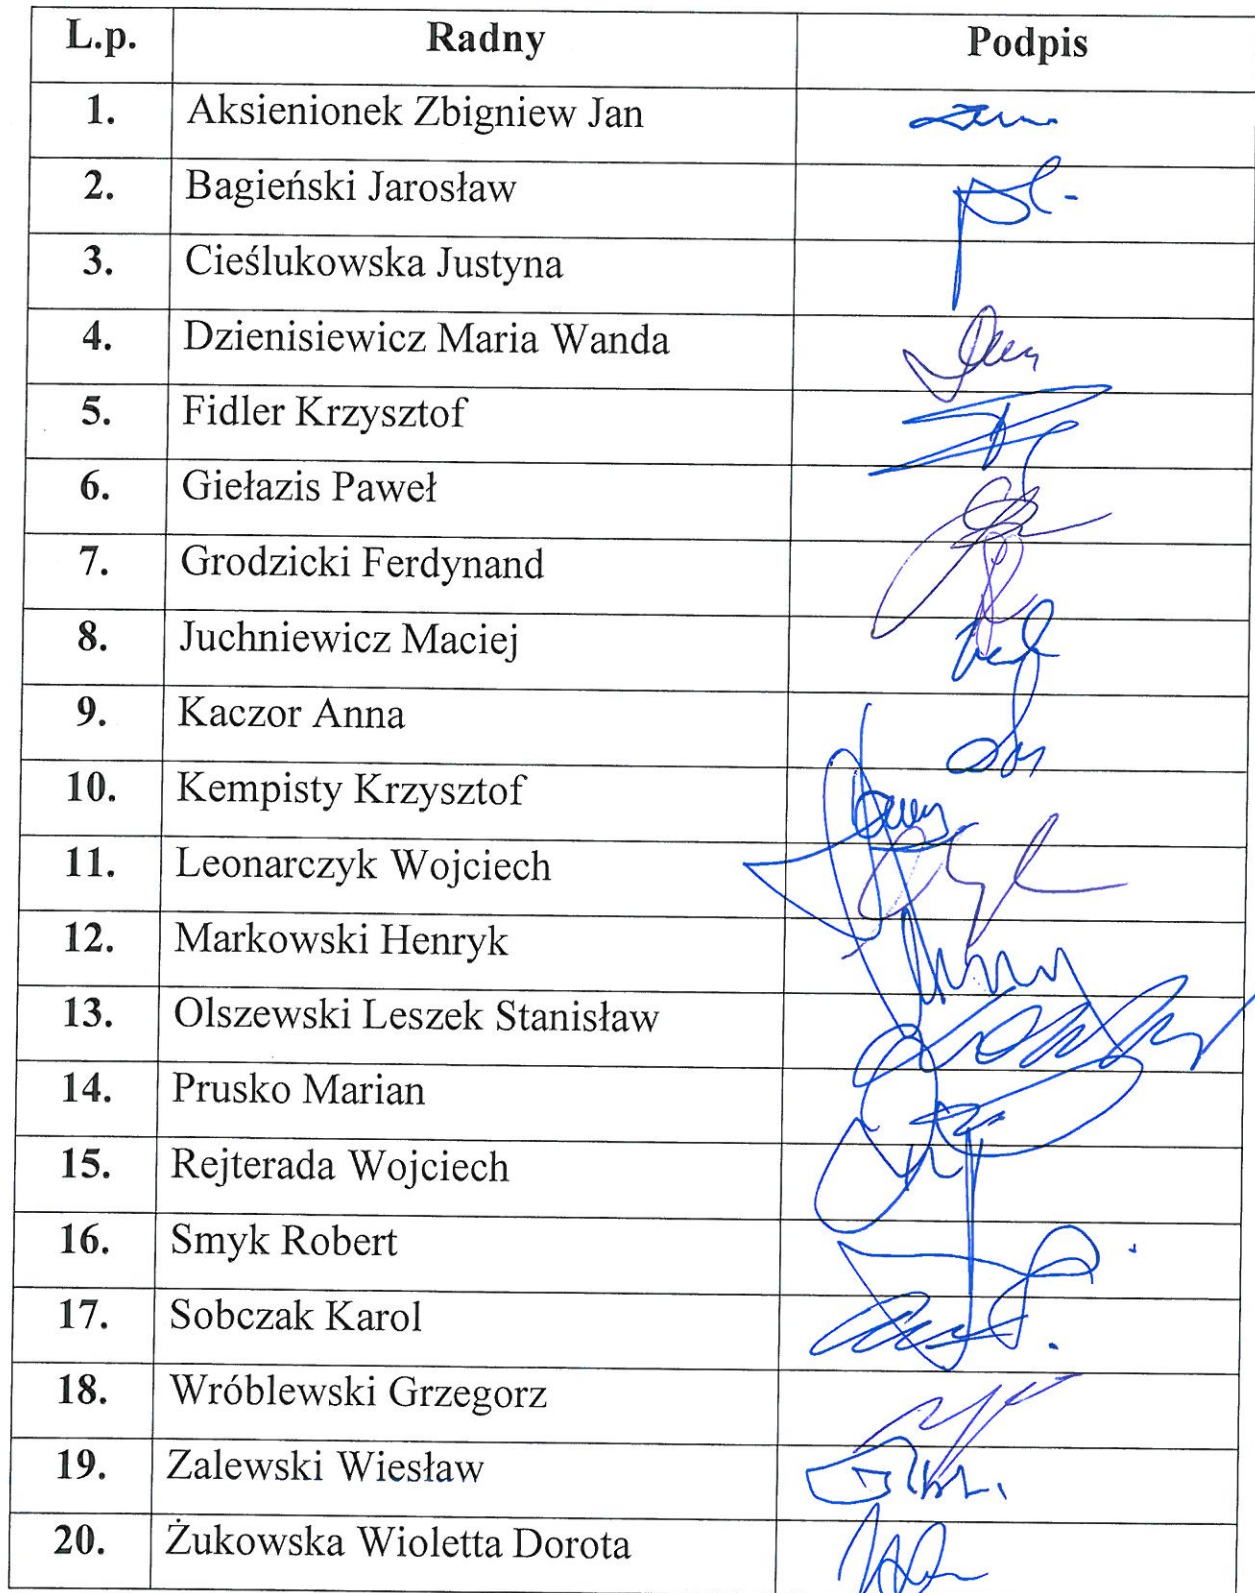 L.p. Radny Podpis
1. Aksienionek Zbigniew Jan
2. Bagieński Jarosław
3. Cieślukowska Justyna
4. Dzienisiewicz Maria Wanda
5. Fidler Krzysztof
6. Giełazis Paweł
7. Grodzicki Ferdynand
8. Juchniewicz Maciej
9. Kaczor Anna
10. Kempisty Krzysztof
11. Leonarczyk Wojciech
12. Markowski Henryk
13. Olszewski Leszek Stanisław
14. Prusko Marian
15. Rejterada Wojciech
16. Smyk Robert
17. Sobczak Karol
18. Wróblewski Grzegorz
19. Zalewski Wiesław
20. Żukowska Wioletta Dorota